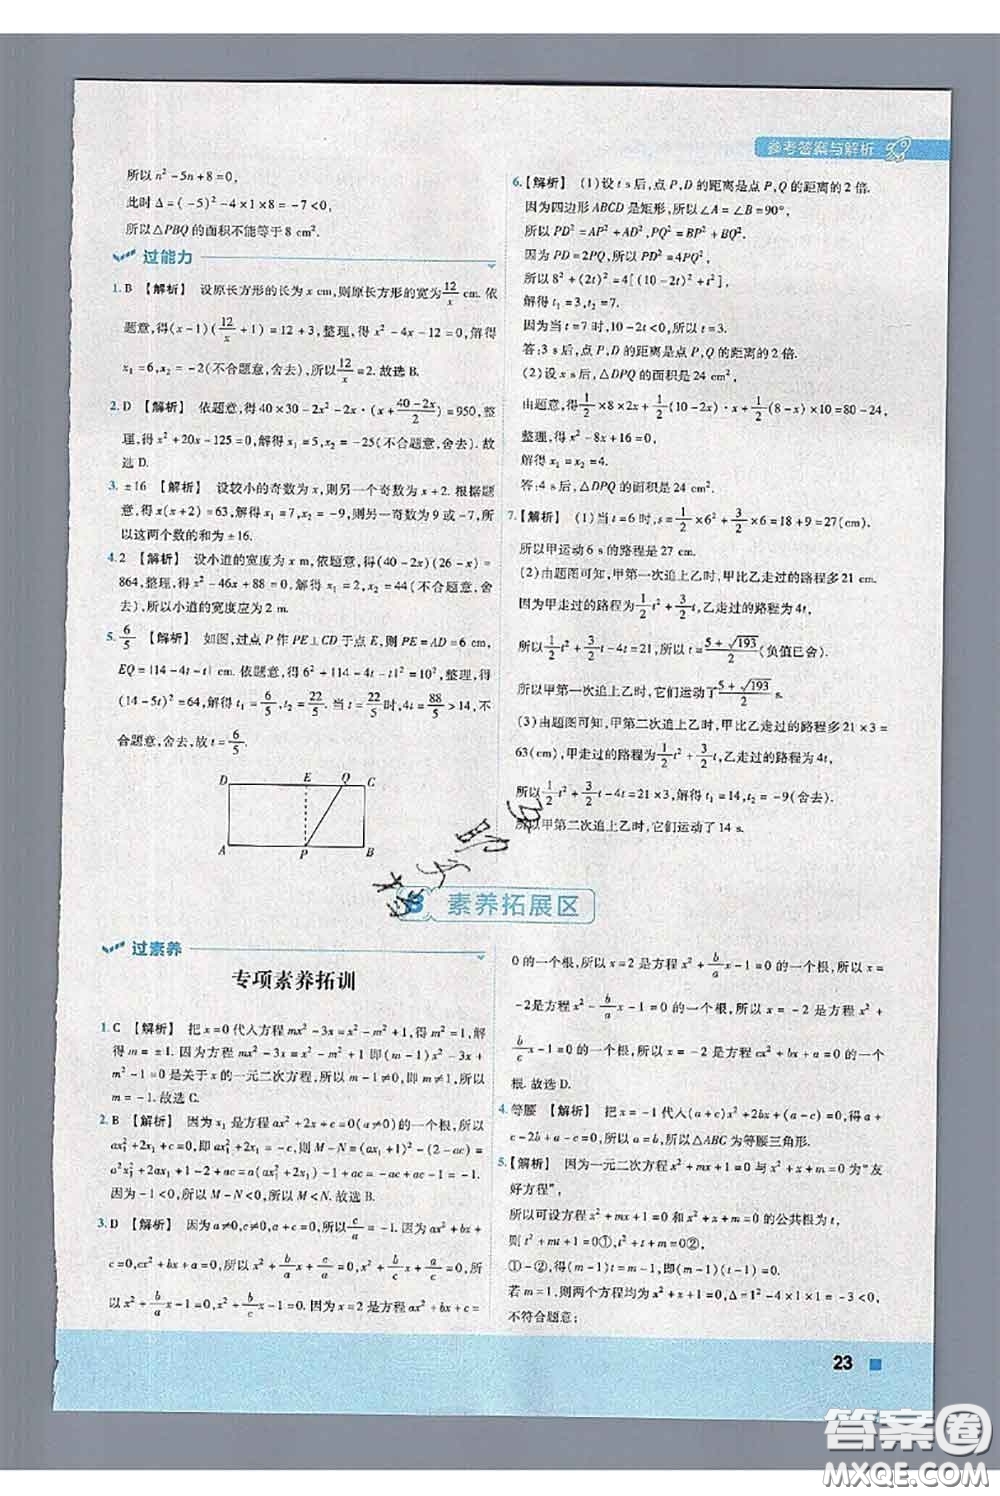 参考答案与解析
所以 n²-5n+8=0,
此时 Δ=(-5)²-4×1×8=-7<0,
所以△PBQ 的面积不能等于 8 cm².
过能力
1. B 【解析】 设原长方形的长为 x cm,则原长方形的宽为 12/x cm. 依
题意,得(x-1)(12/x+1)=12+3,整理,得 x²-4x-12=0,解得
x₁=6,x₂=-2(不合题意,舍去),所以 12/x=2. 故选 B.
2. D 【解析】 依题意,得 40×30-2x²-2x·(x+(40-2x)/2)=950,整
理,得 x²+20x-125=0,解得 x₁=5,x₂=-25(不合题意,舍去). 故
选 D.
3. ±16 【解析】 设较小的奇数为 x,则另一个奇数为 x+2. 根据题
意,得 x(x+2)=63,解得 x₁=7,x₂=-9,则另一奇数为 9 或 -7,所
以这两个数的和为 ±16.
4. 2 【解析】 设小道的宽度为 x m,依题意,得(40-2x)(26-x)=
864,整理,得 x²-46x+88=0,解得 x₁=2,x₂=44(不合题意,舍
去),所以小道的宽度应为 2 m.
5. 6/5 【解析】 如图,过点 P 作 PE⊥CD 于点 E,则 PE=AD=6 cm,
EQ=|14-4t-t| cm. 依题意,得 6²+|14-4t-t|²=10²,整理,得
(14-5t)²=64,解得 t₁=6/5,t₂=22/5. 当 t=22/5 时,4t=88/5>14,不
合题意,舍去,故 t=6/5.
D E Q C
A P B
6. 【解析】 (1)设 t s 后,点 P,D 的距离是点 P,Q 的距离的 2 倍.
因为四边形 ABCD 是矩形,所以∠A=∠B=90°,
所以 PD²=AP²+AD²,PQ²=BP²+BQ².
因为 PD=2PQ,所以 PD²=4PQ²,
所以 8²+(2t)²=4[(10-2t)²+t²],
解得 t₁=3,t₂=7.
因为当 t=7 时,10-2t<0,所以 t=3.
答:3 s 后,点 P,D 的距离是点 P,Q 的距离的 2 倍.
(2)设 x s 后,△DPQ 的面积是 24 cm²,
由题意,得 1/2×8×2x+1/2(10-2x)·x+1/2(8-x)×10=80-24,
整理,得 x²-8x+16=0,
解得 x₁=x₂=4.
答:4 s 后,△DPQ 的面积是 24 cm².
7. 【解析】 (1)当 t=6 时,s=1/2×6²+3/2×6=18+9=27(cm),
所以甲运动 6 s 的路程是 27 cm.
(2)由题图可知,甲第一次追上乙时,甲比乙走过的路程多 21 cm.
因为甲走过的路程为 1/2t²+3/2t,乙走过的路程为 4t,
所以 1/2t²+3/2t-4t=21,所以 t=(5+√193)/2(负值已舍).
所以甲第一次追上乙时,它们运动了 (5+√193)/2 s.
(3)由题图可知,甲第二次追上乙时,甲比乙走过的路程多 21×3=
63(cm),甲走过的路程为 1/2t²+3/2t,乙走过的路程为 4t,
所以 1/2t²+3/2t-4t=21×3,解得 t₁=14,t₂=-9(舍去).
所以甲第二次追上乙时,它们运动了 14 s.
B 素养拓展区
过素养
专项素养拓训
1. C 【解析】 把 x=0 代入方程 mx²-3x=x²-m²+1,得 m²=1,解
得 m=±1. 因为方程 mx²-3x=x²-m²+1 即(m-1)x²-3x+
m²-1=0 是关于 x 的一元二次方程,所以 m-1≠0,即 m≠1,所以
m=-1. 故选 C.
2. B 【解析】 因为 x₁ 是方程 ax²+2x+c=0(a≠0)的一个根,所以
ax₁²+2x₁+c=0,即 ax₁²+2x₁=-c,则 M-N=(ax₁+1)²-(2-ac)=
a²x₁²+2ax₁+1-2+ac=a(ax₁²+2x₁)-1+ac=-ac+ac-1=-1.
因为 -1<0,所以 M-N<0,所以 M<N. 故选 B.
3. D 【解析】 因为 a≠0,c≠0,a+c=0,所以 c/a=-1. 因为 ax²+bx+
c=0,cx²+bx+a=0,所以 x²+b/a x+c/a=0,c/a x²+b/a x+1=0,所
以 x²+b/a x-1=0,x²-b/a x-1=0. 因为 x=2 是方程 ax²+bx+c=
0 的一个根,所以 x=2 是方程 x²+b/a x-1=0 的一个根,所以 x=
-2 是方程 x²-b/a x-1=0 的一个根,所以 x=-2 是方程 x²+
b/c x-1=0 的一个根,所以 x=-2 是方程 cx²+bx+a=0 的一个
根. 故选 D.
4. 等腰 【解析】 把 x=-1 代入(a+c)x²+2bx+(a-c)=0,得 a+
c-2b+a-c=0,所以 a=b,所以△ABC 为等腰三角形.
5. 【解析】 因为一元二次方程 x²+mx+1=0 与 x²+x+m=0 为“友
好方程”,
所以可设方程 x²+mx+1=0 和 x²+x+m=0 的公共根为 t,
则 t²+mt+1=0①,t²+t+m=0②,
①-②,得(m-1)t=m-1,即(m-1)(t-1)=0.
若 m=1,则两个方程均为 x²+x+1=0,Δ=1²-4×1×1=-3<0,
不符合题意;
23
答案圈
MXQE.COM